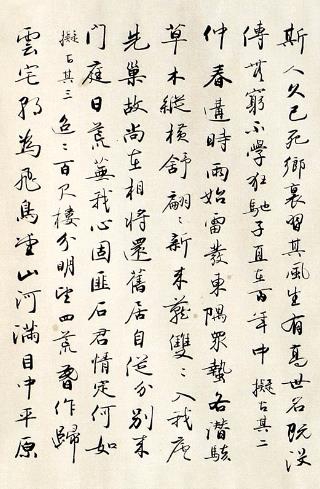 斯人久已死鄉裏習其風生有高世名既没
傳無窮不學狂馳子直在百年中 擬古其二
仲春遘時雨始雷發東隅眾蟄各潛駭
草木縱橫舒翩〻新來燕雙〻入我廬
先巢故尚在相將還舊居自從分別來
門庭日荒蕪我心固匪石君情定何如
擬古其三 迢〻百尺樓分明望四荒暮作歸
雲宅朝為飛鳥堂山河滿目中平原